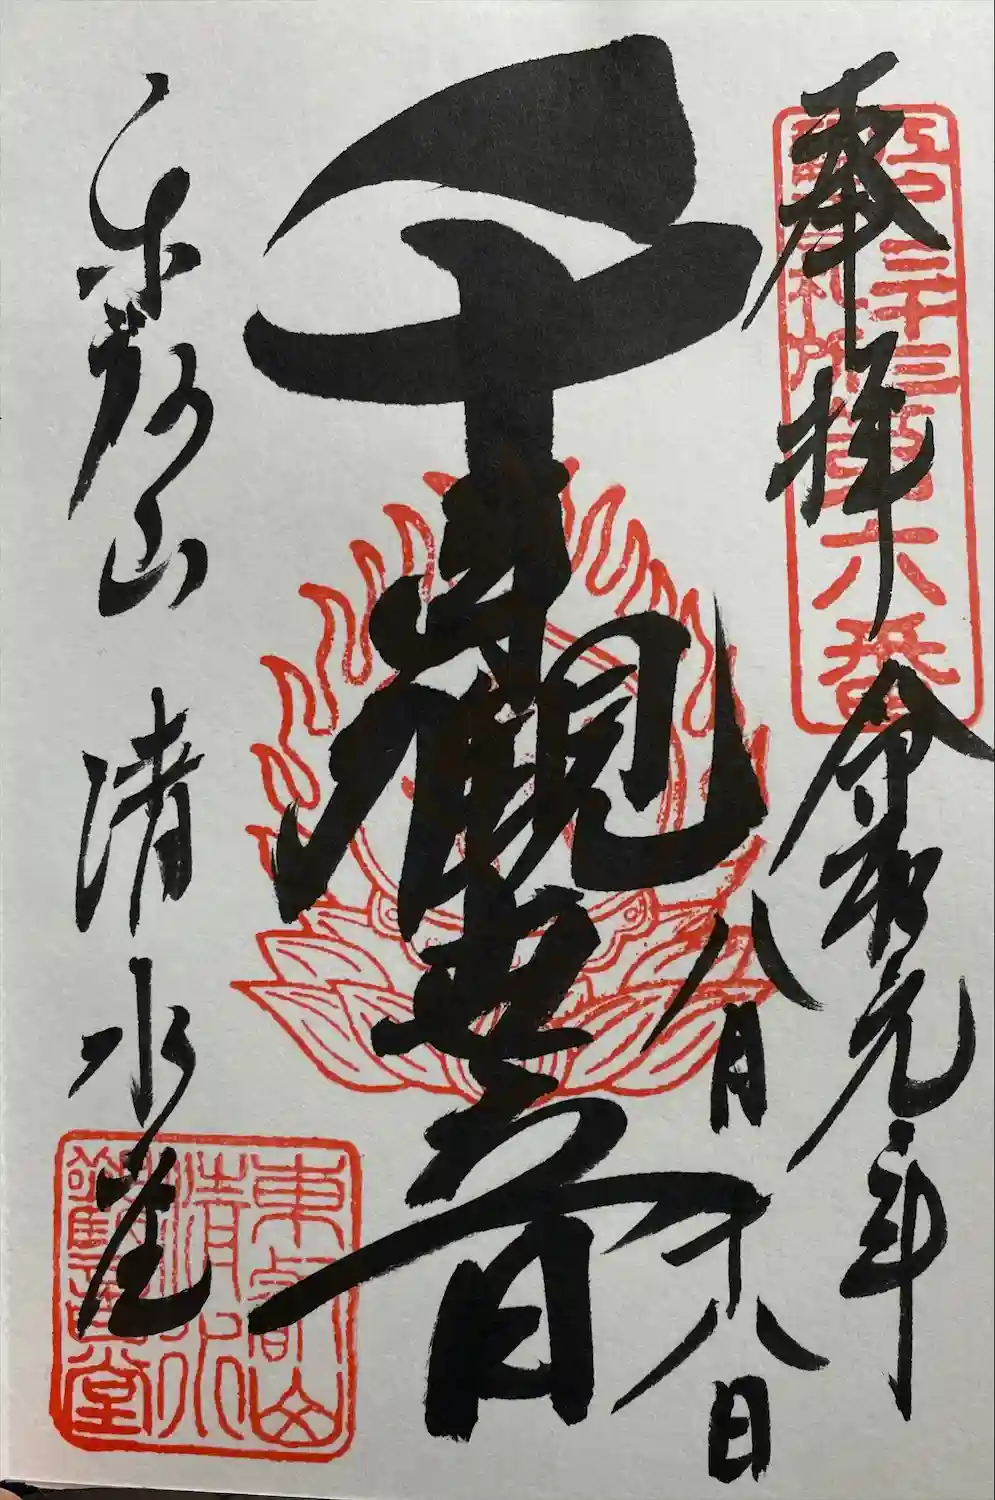 奉拝
令和元年
八月十八日
千手観世音
東叡山 清水堂
江戸三十三
札所第六番
東叡山
清水
観音堂